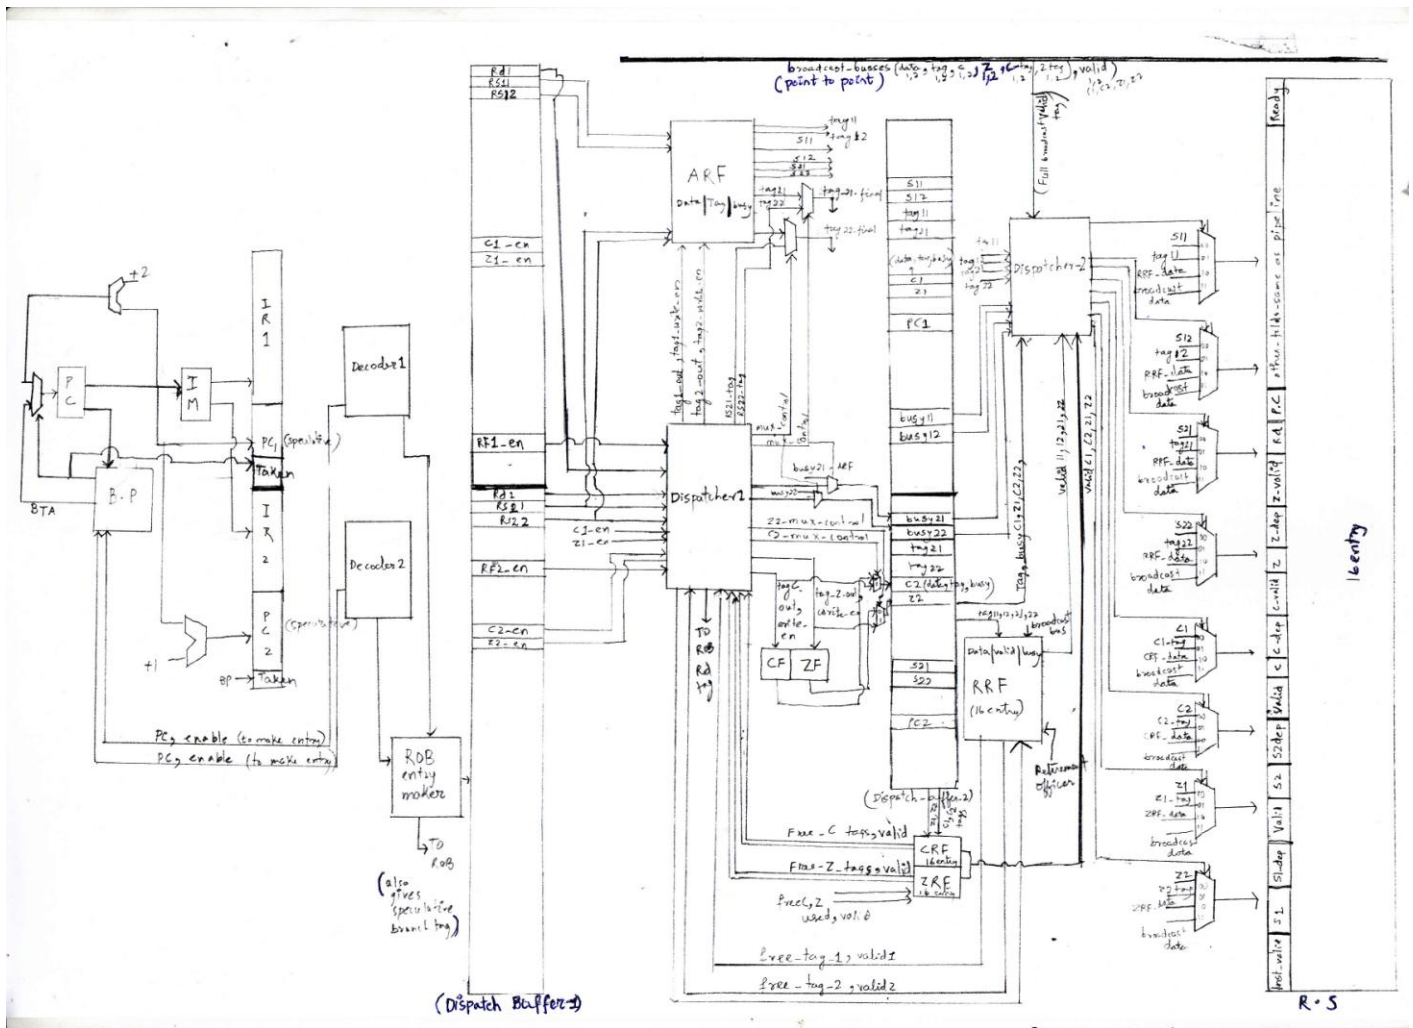 broadcast-busses (data, tag, c, z, c-tag, z tag), valid)
1,2 1,2 1,2 1,2 1,2 1,2
(point to point)
+2
PC
IM
B.P
BTA
+1
IR1
PC1 (speculative)
Taken
IR2
PC2
(speculative)
BP
Taken
PC, enable (to make entry)
PC, enable (to make entry)
Decoder1
Decoder2
ROB
entry
maker
TO
ROB
(also
gives
speculative
branch tag)
Rd1
RS11
RS12
C1_en
Z1_en
RF1_en
Rd2
RS21
RS22
RF2_en
C2_en
Z2_en
(Dispatch Buffer-1)
C1_en
Z1_en
ARF
Data|Tag|busy
tag11
tag12
S11
S12
S21
S22
tag21
tag22
tag_21_final
tag_22_final
tag1_out, tag1_write_en
tag2_out, tag2_write_en
RS21_tag
RS22_tag
mux_control
mux_control
Dispatcher1
busy21_ARF
busy22
Z2-mux-control
C2-mux-control
tagC_out, write_en
tag_Z_out, write_en
CF
ZF
TO
ROB
Rd
tag
S11
S12
tag11
tag21
(data, tag, busy)
C1
Z1
PC1
busy11
busy12
busy21
busy22
tag21
tag22
C2 (data, tag, busy)
Z2
S21
S22
PC2
(Dispatch_buffer_2)
Z1, Z2
C1, C2
tags
(Full broadcast valid tag)
tag11
tag12
tag21
tag22
Dispatcher-2
Tag, busy C1, Z1, C2, Z2,
valid 11, 12, 21, 22
valid C1, C2, Z1, Z2
tag11,12,21,22
broadcast
bus
Data|valid|busy
RRF
(16 entry)
Retirement
officer
CRF
16 entry
ZRF
16 entry
Free_C tags, valid
Free-Z_tags, valid
free C, Z
used, valid
free_tag_1, valid1
free_tag_2, valid2
S11
tag11
RRF_data
broadcast
data
S12
tag12
RRF_data
broadcast
data
S21
tag21
RRF_data
broadcast
data
S22
tag22
RRF_data
broadcast
data
C1
C1_tag
CRF_data
broadcast
data
C2
C2_tag
CRF_data
broadcast
data
Z1
Z1_tag
ZRF_data
broadcast
data
Z2
Z2_tag
ZRF_data
broadcast
data
Ready
other_fields-same as pipeline
P.C
Rd
Z-valid
Z-dep
Z
C-valid
C-dep
C
Valid
S2dep
S2
Valid
S1-dep
S1
Inst_valid
16 entry
R.S